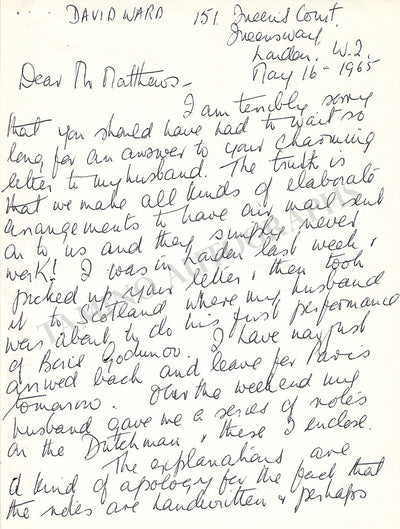 DAVID WARD 151 Queen's Court,
Queensway,
London. W.2.
May 16 - 1965
Dear Mr Matthews -
I am terribly sorry
that you should have had to wait so
long for an answer to your charming
letter to my husband. The truth is
that we make all kinds of elaborate
arrangements to have our mail sent
on to us and they simply never
work! I was in London last week &
picked up your letter & then took
it to Scotland where my husband
was about to do his first performance
of Boris Godunov. I have now just
arrived back and leave for Paris
tomorrow. Over the weekend my
husband gave me a series of notes
on the Dutchman & these I enclose.
The explanations are
a kind of apology for the fact that
the notes are handwritten & perhaps